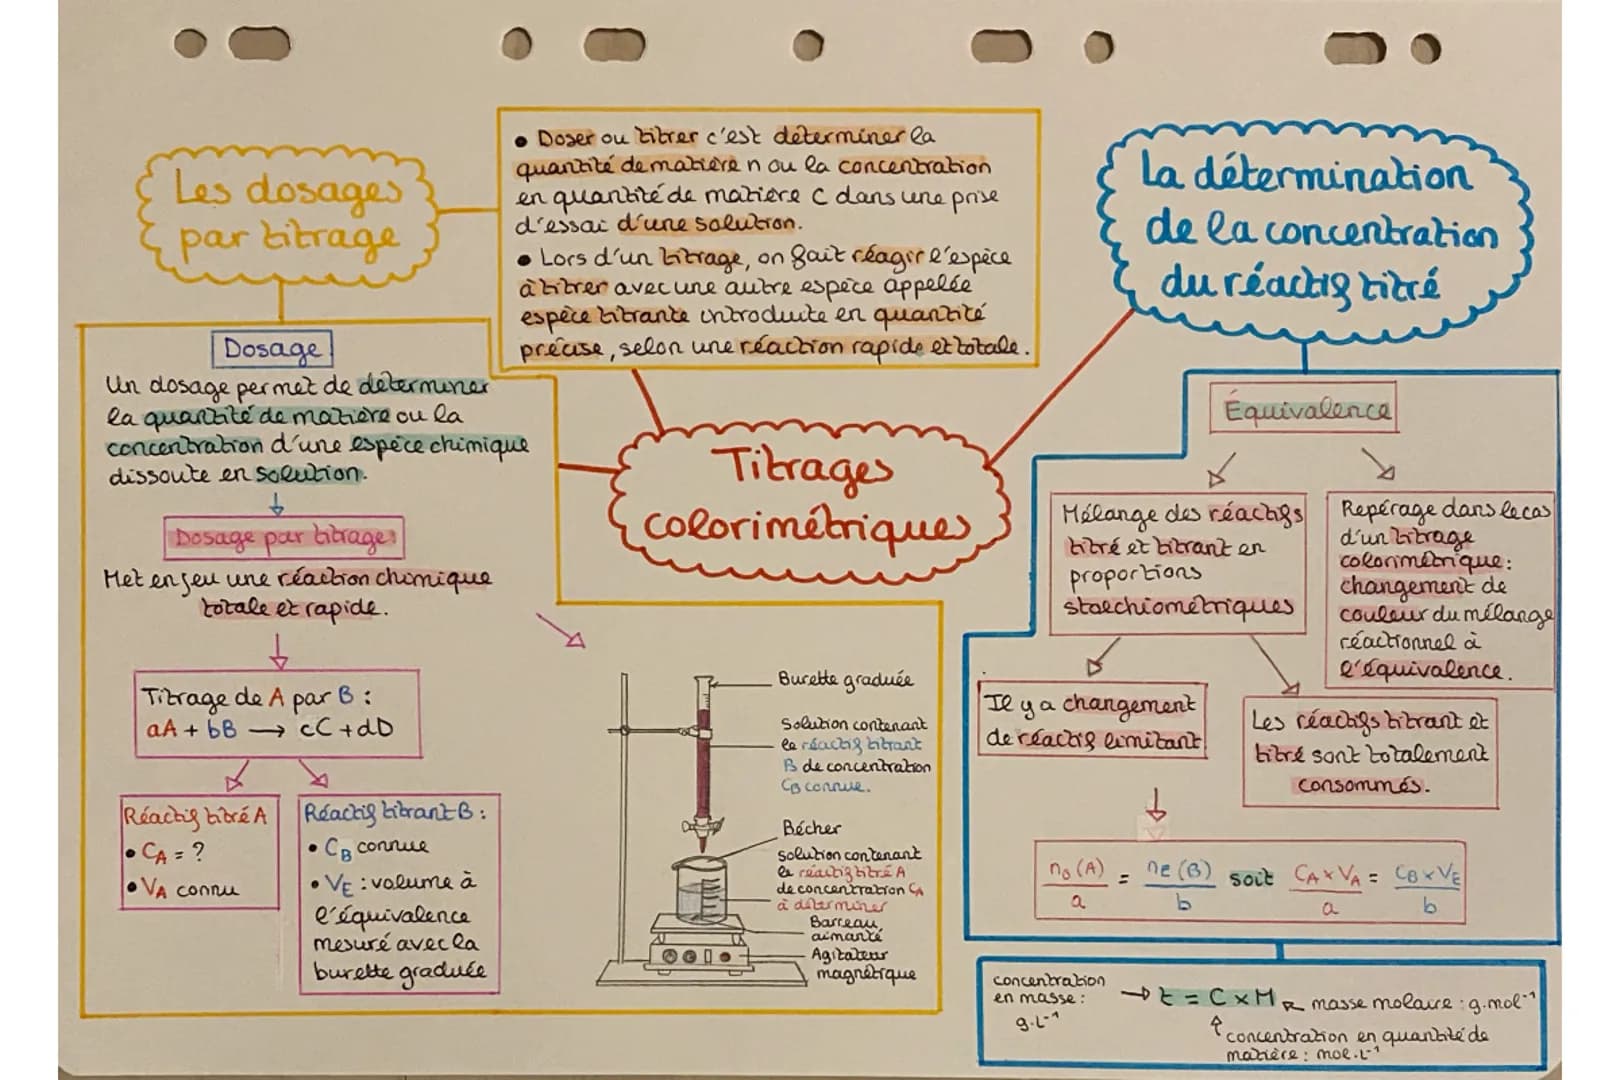 Les dosages
par titrage
• Doser ou titrer c'est déterminer la
quantité de matière n ou la concentration
en quantité de matière C dans une prise
d'essai d'une solution.
• Lors d'un titrage, on fait réagir l'espèce
à titrer avec une autre espèce appelée
espèce titrante introduite en quantité
précise, selon une réaction rapide et totale.
La détermination
de la concentration
du réactif titré
Titrages
colorimétriques
Dosage
Un dosage permet de déterminer
la quantité de matière ou la
concentration d'une espèce chimique
dissoute en solution.
Dosage par titrage
Met en jeu une réaction chimique
totale et rapide.
Titrage de A par B :
aA + bB → cC + dD
Réactif titré A
• CA = ?
• VA connu
Réactif titrant B :
• CB connue
• VE : volume à
l'équivalence
mesuré avec la
burette graduée
Burette graduée
Solution contenant
le réactif titrant
B de concentration
CB connue.
Bécher
Solution contenant
le réactif titré A
de concentration CA
à déterminer
Barreau
aimanté
Agitateur
magnétique
Équivalence
Mélange des réactifs
titré et titrant en
proportions
stœchiométriques
Repérage dans le cas
d'un titrage
colorimétrique :
changement de
couleur du mélange
réactionnel à
l'équivalence.
Il y a changement
de réactif limitant
Les réactifs titrant et
titré sont totalement
consommés.
n0(A)/a = nE(B)/b soit CA x VA/a = CB x VE/b
concentration
en masse :
g.L⁻¹
→ t = C x M
masse molaire : g.mol⁻¹
concentration en quantité de
matière : mol.L⁻¹